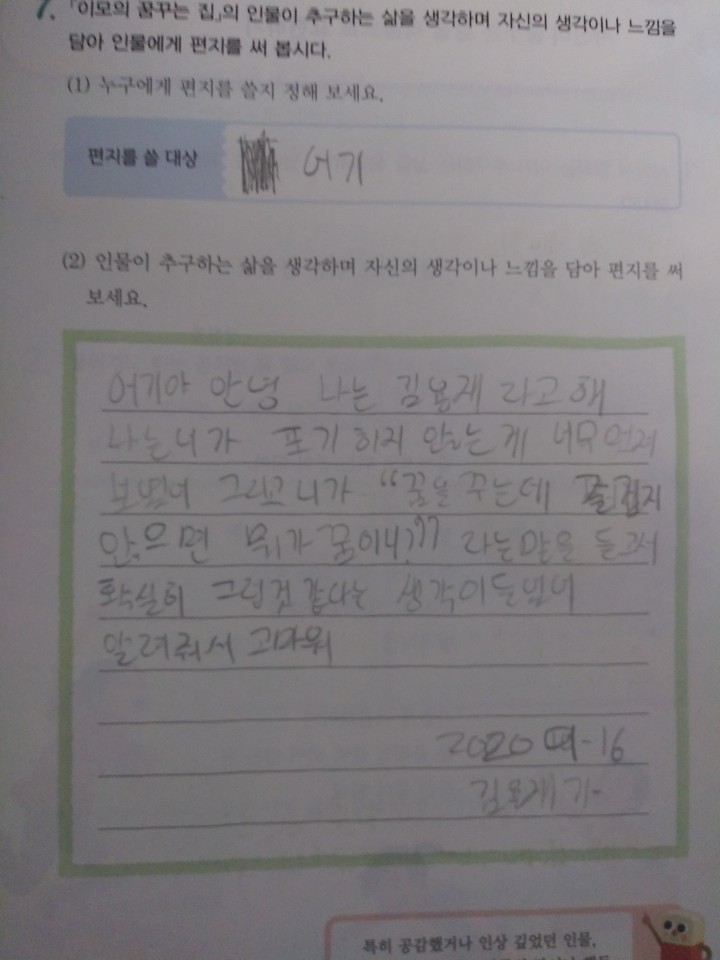 7. 「이모의 꿈꾸는 집」의 인물이 추구하는 삶을 생각하며 자신의 생각이나 느낌을
담아 인물에게 편지를 써 봅시다.
(1) 누구에게 편지를 쓸지 정해 보세요.
편지를 쓸 대상 어기
(2) 인물이 추구하는 삶을 생각하며 자신의 생각이나 느낌을 담아 편지를 써
보세요.
어기야 안녕 나는 김용재 라고 해
나는 니가 포기 하지 않는게 너무 멋져
보였어 그리고 니가 "꿈을 꾸는데 즐겁지
않으면 뭐가 꿈이니??" 라는말을 듣고서
확실히 그런것 같다는 생각이들었어
알려줘서 고마워
2020 -16
김용재가-
특히 공감했거나 인상 깊었던 인물,